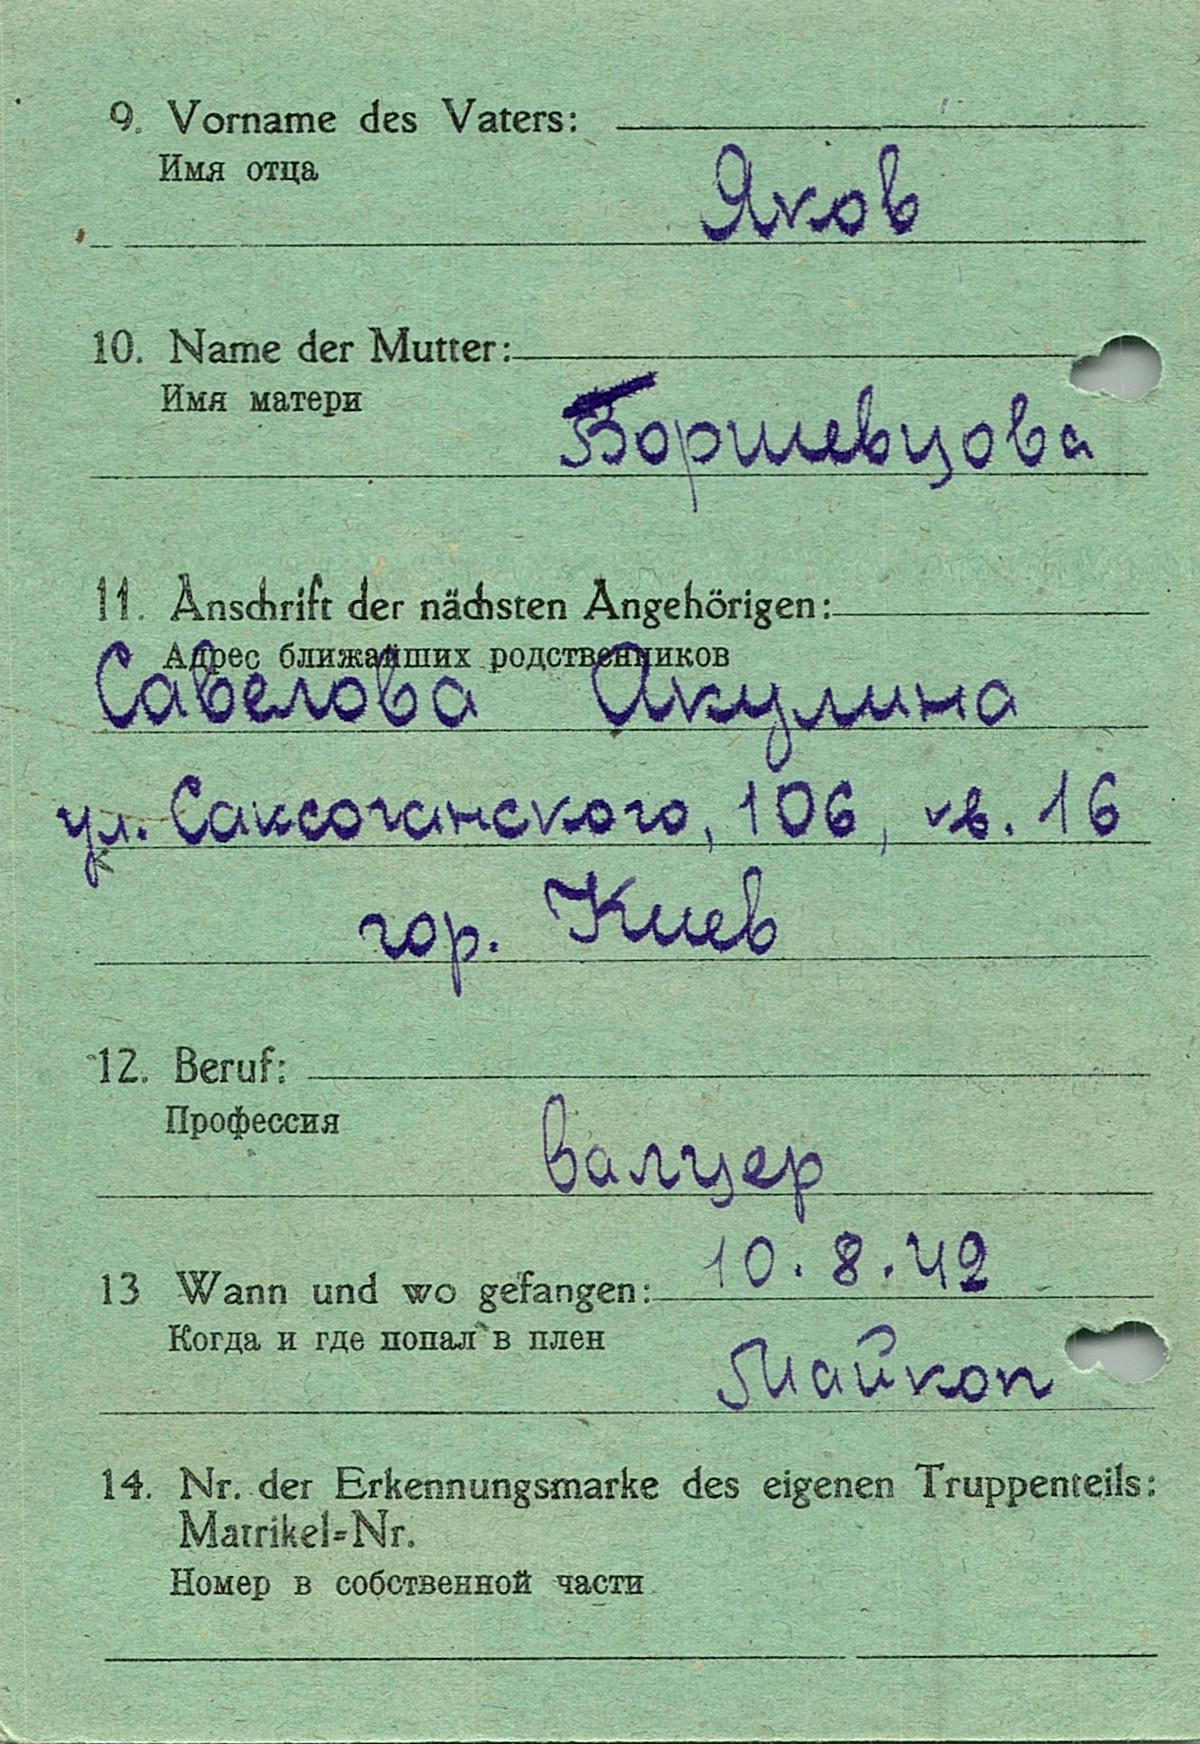 9. Vorname des Vaters:
Имя отца
Яков
10. Name der Mutter:
Имя матери
Боршевцова
11. Anschrift der nächsten Angehörigen:
Адрес ближайших родственников
Савелова Акулина
ул. Саксоганского, 106, кв. 16
гор. Киев
12. Beruf:
Профессия
валцер
10.8.42
13 Wann und wo gefangen:
Когда и где попал в плен
Майкоп
14. Nr. der Erkennungsmarke des eigenen Truppenteils:
Matrikel=Nr.
Номер в собственной части